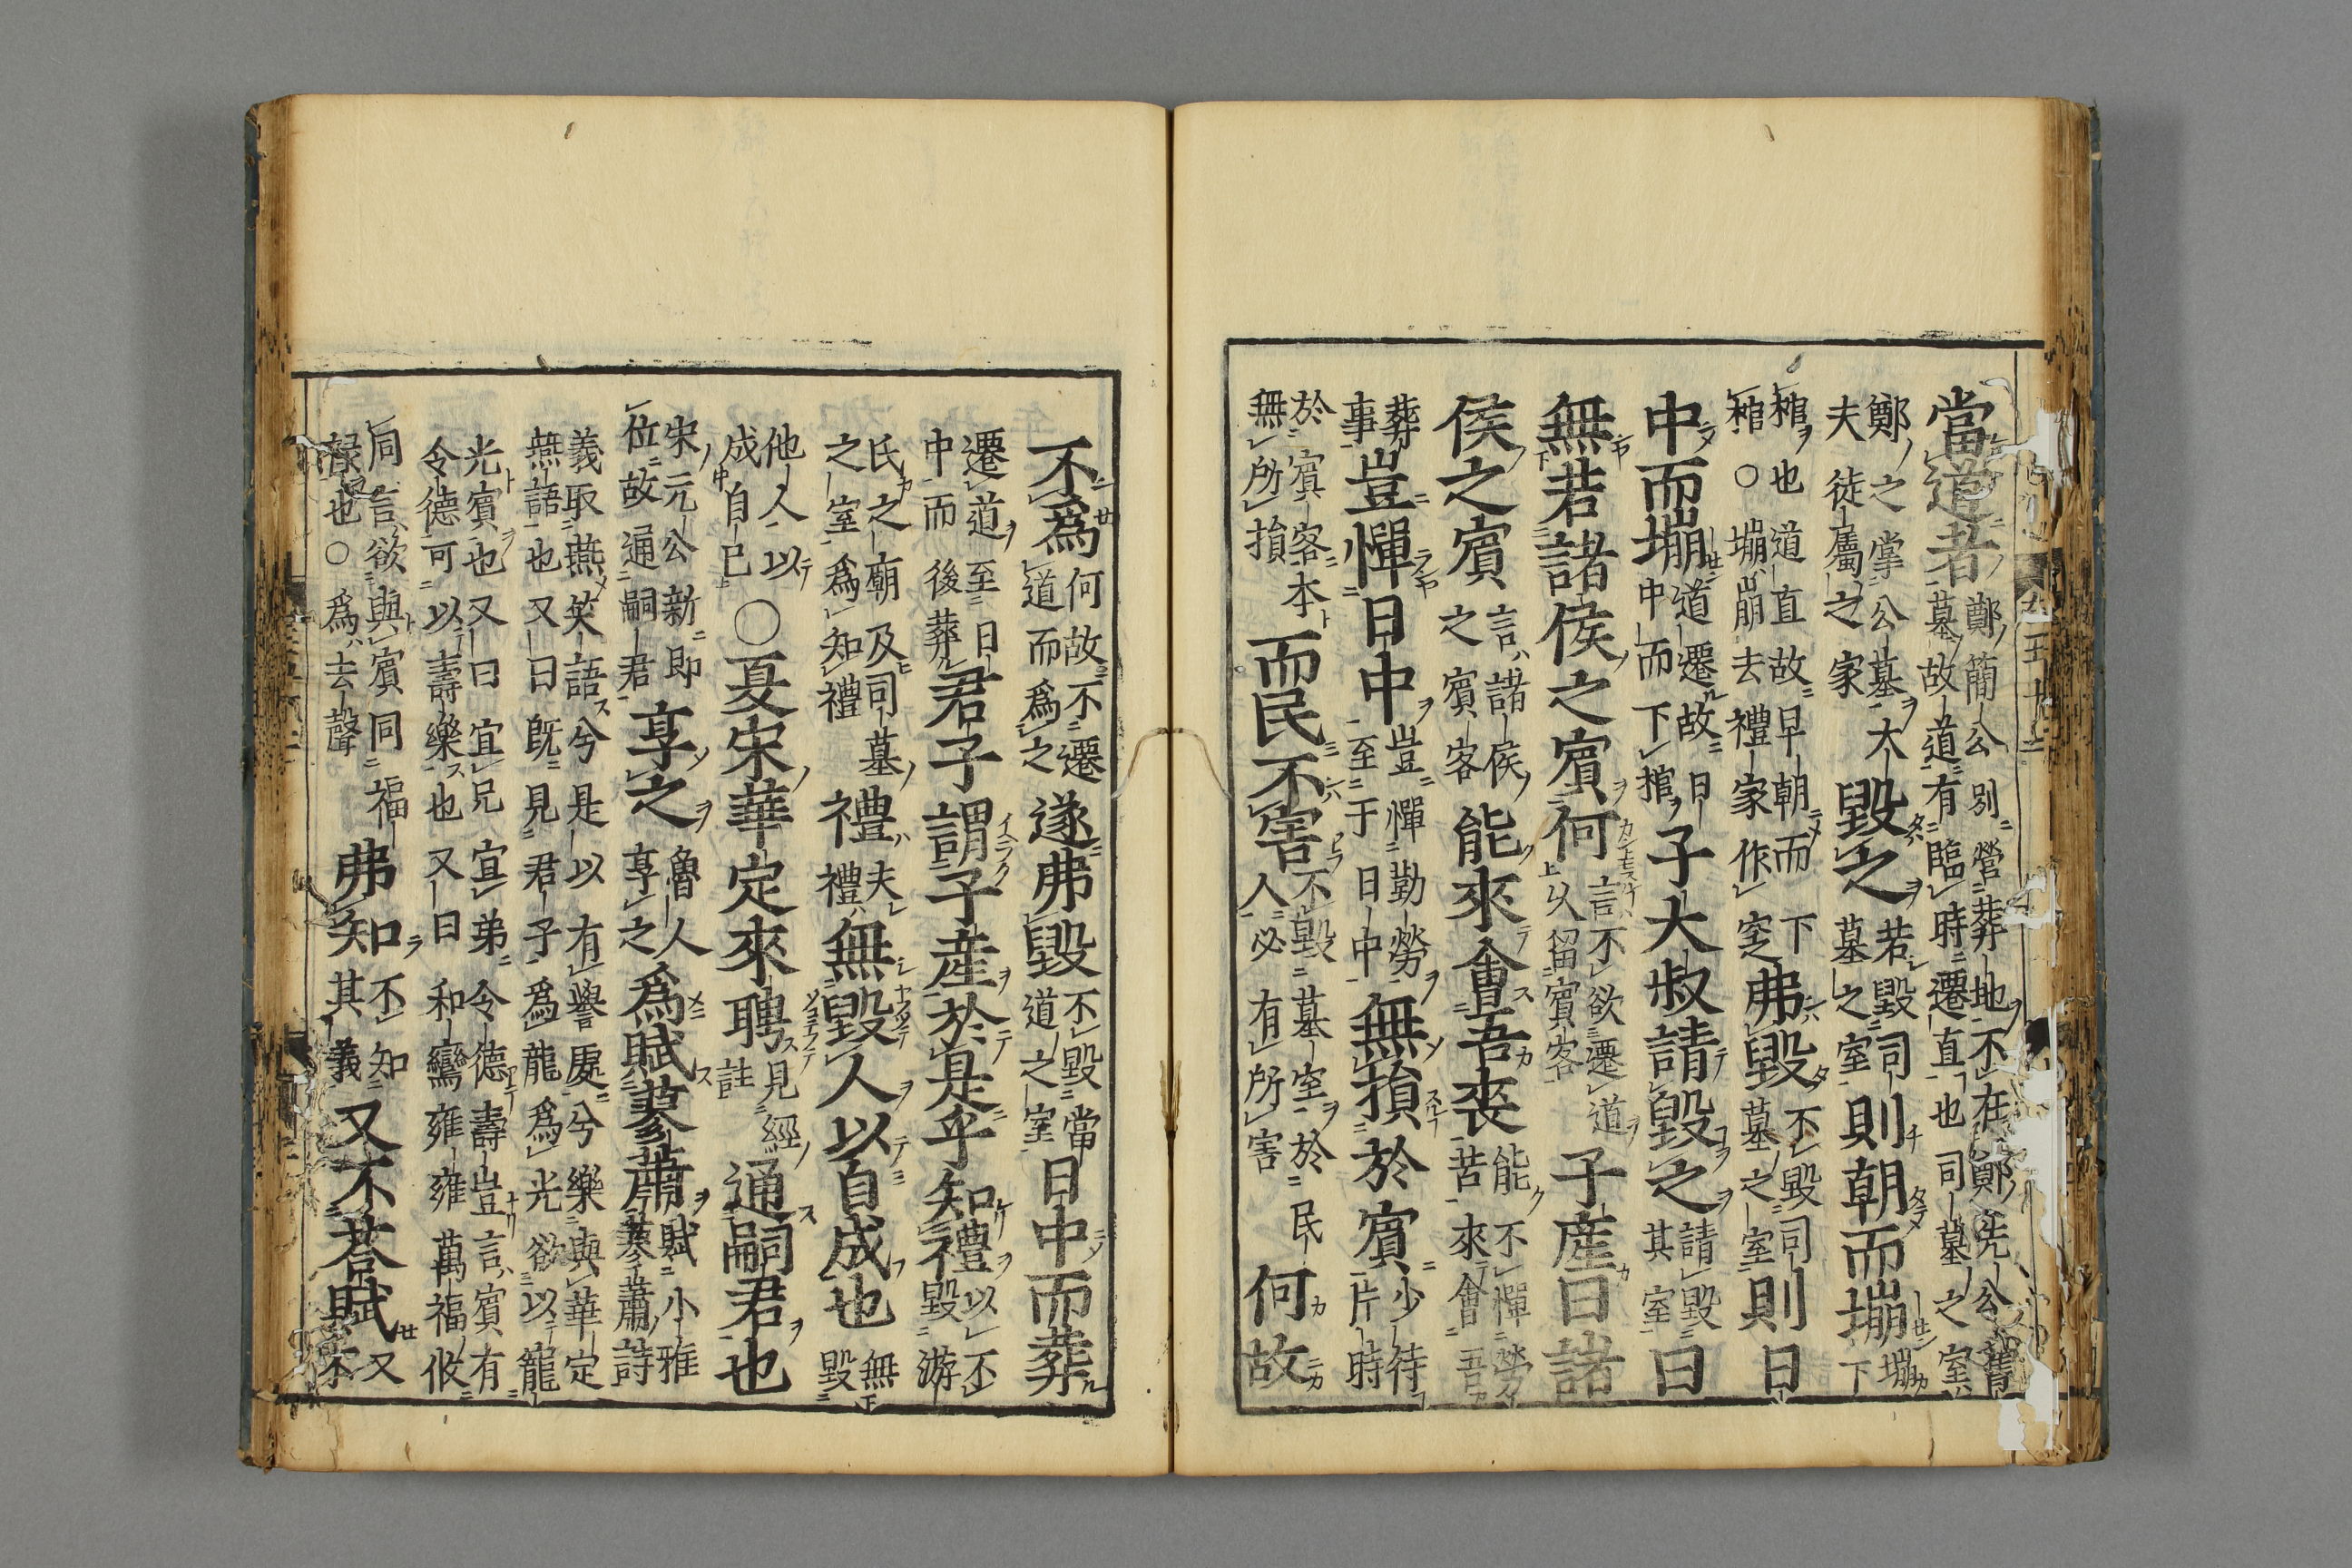 當道者鄭簡公別營葬地不在鄭先公舊墓故道有臨時遷直也司墓之室
鄭之掌公墓大夫徒屬之家毀之若毀司墓之室則朝而塴塴下
棺也道直故早朝而下棺○塴崩去禮家作窆弗毀不毀司墓之室則日
中而塴道遷故日中而下棺子大叔請毀之請毀其室曰
無若諸侯之賓何言不欲遷道以留賓客子產曰諸
侯之賓言諸侯之賓客能來會吾喪能不憚勞苦來會吾
葬事豈憚日中豈憚勤勞至于日中無損於賓少待片時
於賓客本無所損而民不害不毀墓室於民人必有所害何故
不為何故不遷道而為之遂弗毀不毀當道之室日中而葬
遷道至日中而後葬君子謂子產於是乎知禮以不毀游
氏之廟及司墓之室為知禮禮夫禮無毀人以自成也無毀
他人以成自己○夏宋華定來聘見經註通嗣君也
宋元公新即位故通嗣君享之魯人享之為賦蓼蕭賦小雅蓼蕭詩
義取燕笑語兮是以有譽處兮樂與華定燕語也又曰既見君子為龍為光欲以寵
光賓也又曰宜兄宜弟令德壽豈言賓有令德可以壽樂也又曰和鸞雍雍萬福攸
同言欲與賓同福祿也○為去聲弗知不知其義又不荅賦又